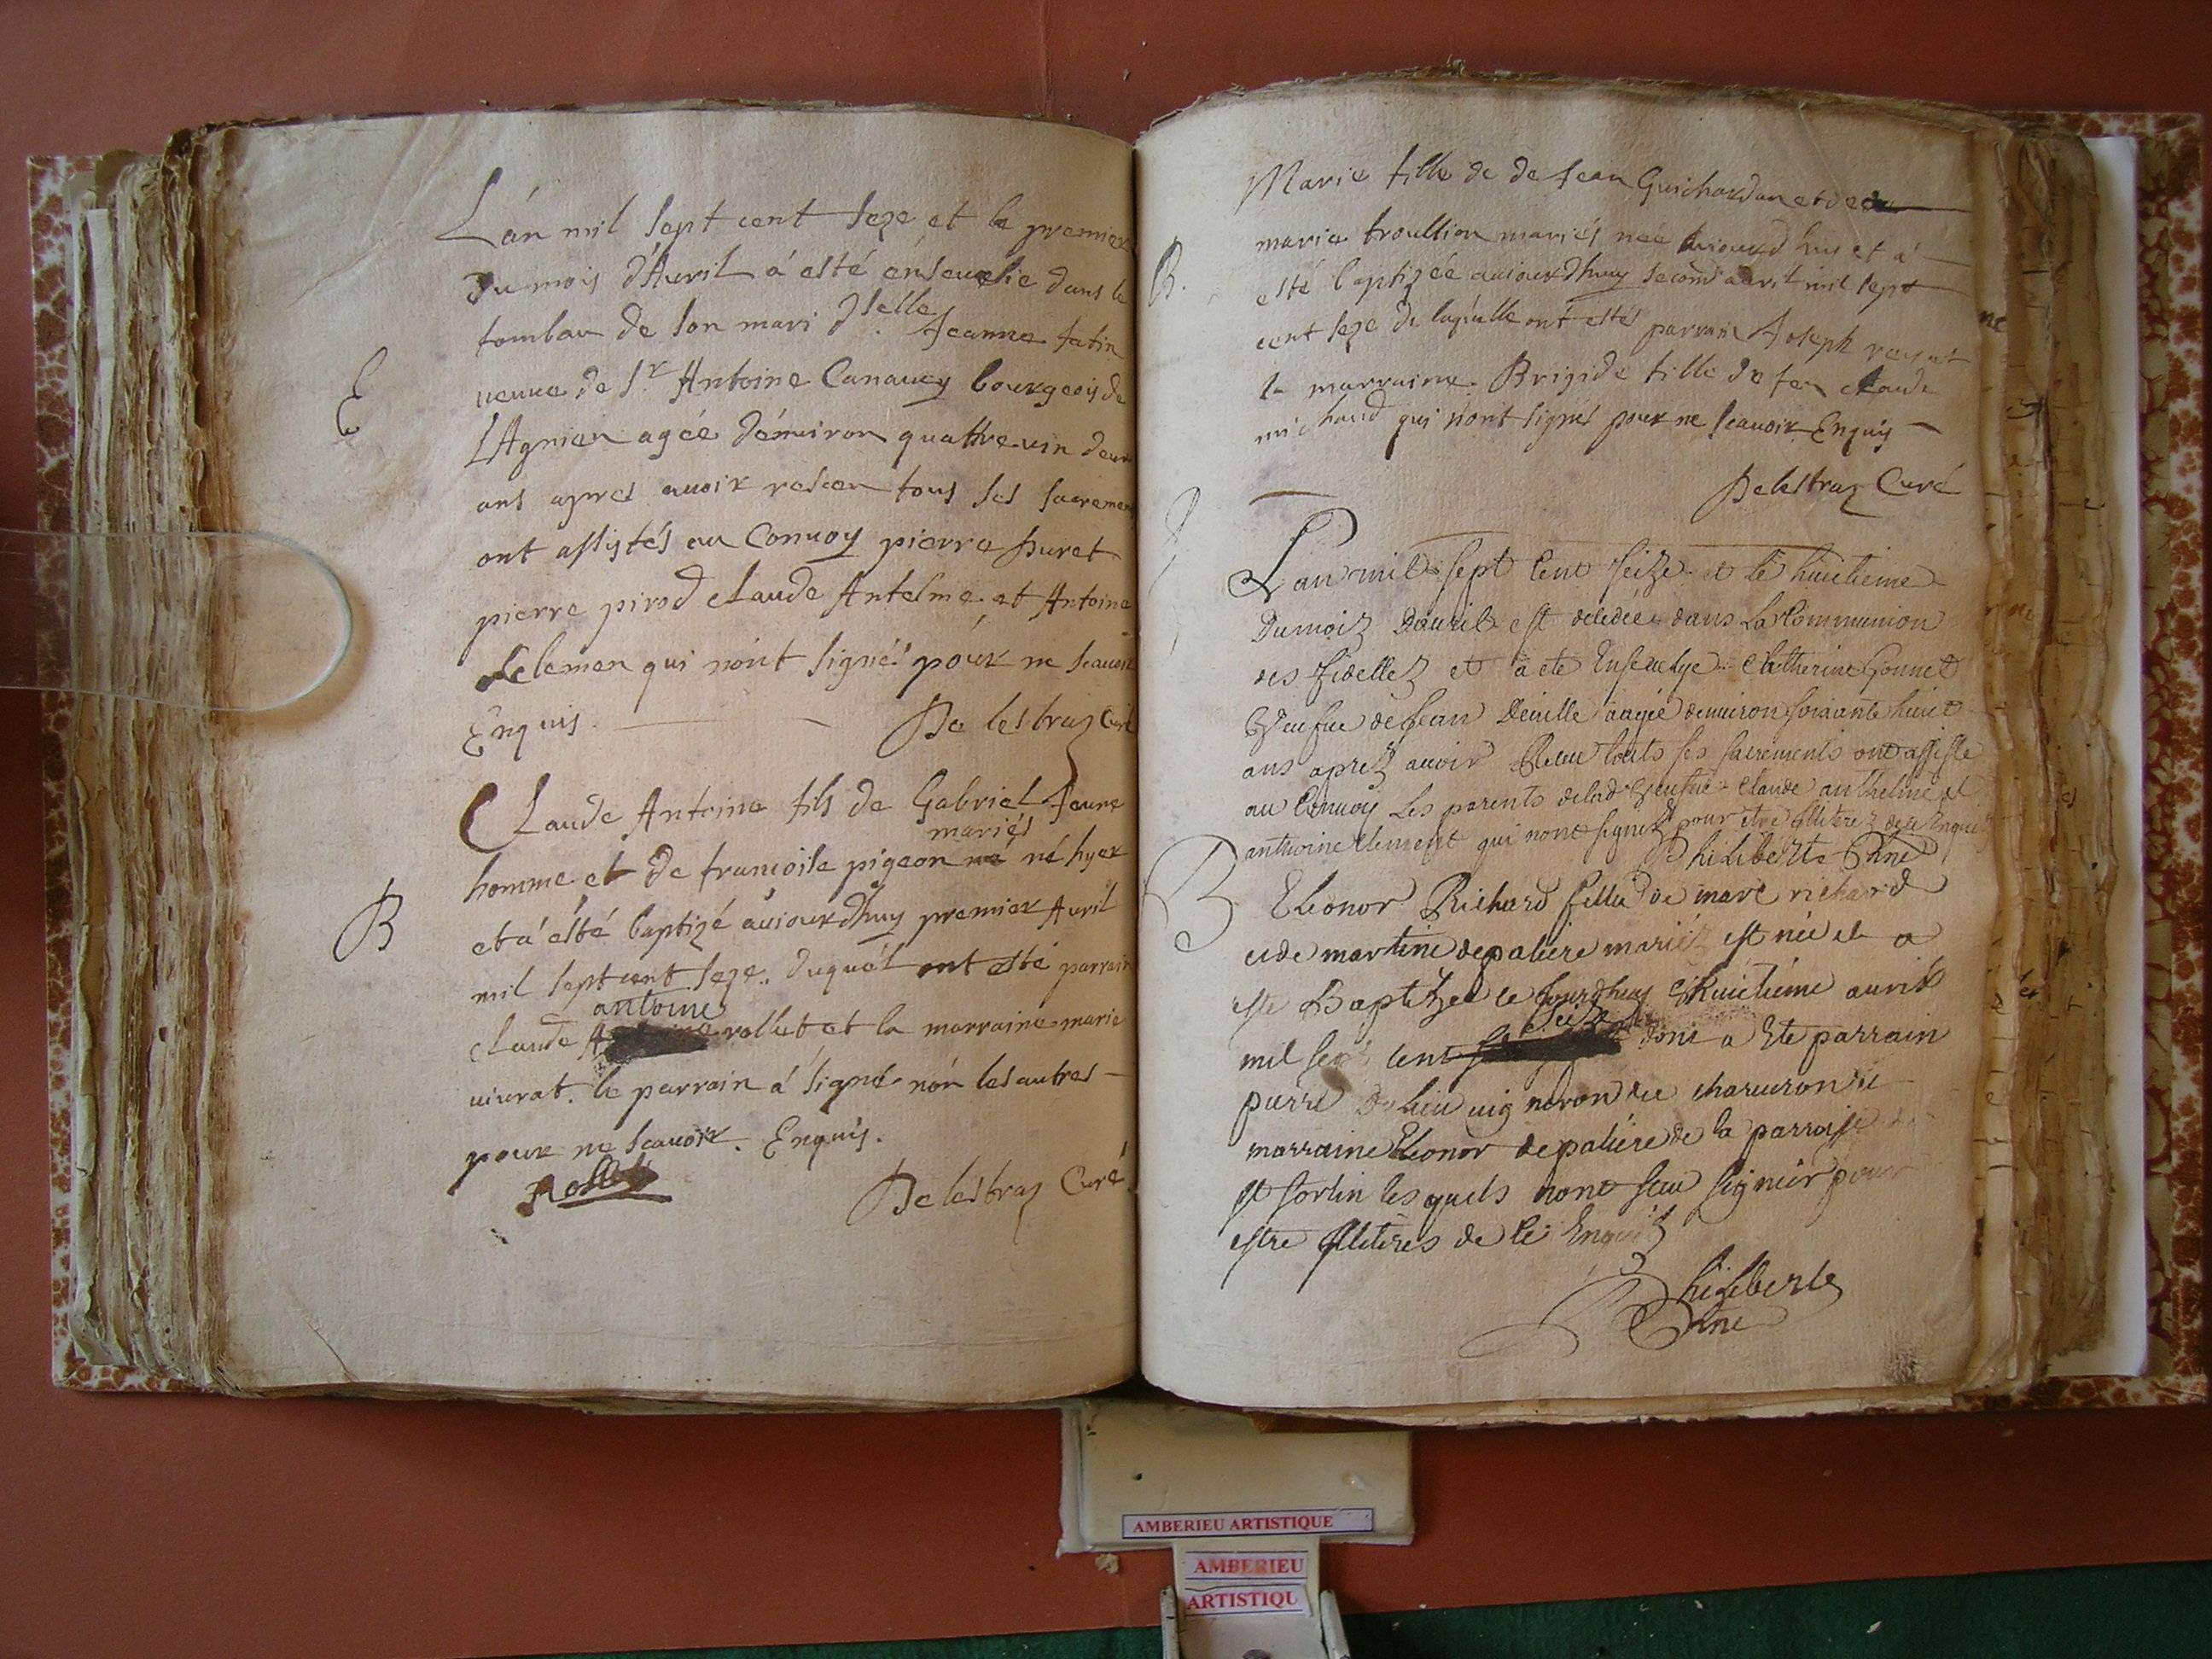 L'án mil sept cent seze et le premier
du mois d'Auril á esté énseuelie dans le
tombau de son mari dselle. Jeanne fatin
veuue de Sr. Antoine Canauey bourgeois de
LAgnieu agée d'énuiron quattreuin deux
E
ans apres auoir reseu tous ses sacremens
ont assistés au Conuoy pierre Duret
pierre pirod claude Antelme et Antoine
Clemen qui nónt signés póur ne scauoir
Enquis. De lestraz Curé
Claude Antoine fils de Gabriel Jeune
mariés
homme et de francoise pigeon né hyer
B
et á ésté baptizé auiourdhuy premier Auril
mil sept cent seze. duquél ont esté parrain
antoine
claude rollet et la marraine marie
uiurat. le parrain á signé nón les autres
pour ne scauoir. Enquis.
Rollet
De lestraz Curé
Marie fille de de Jean Guichardan et de
marie troullion mariés née auiourdhuy et á
B.
esté baptizée auiourdhuy second auril mil sept
cent seze de laquélle ont estés parrain Joseph
la marraine Brigide fille de feu claude
michaud qui nónt signés pour ne scauoir Enquis
Delestraz Curé
L'an mil sept cent seize et le huictieme
Du mois Dauril est decedée dans La Communion
des fidelles et a ete Enseuelye Catherine Gonnet
Veufue de Jean Deuille aagée denuiron soixante huict
ans aprez auoir Receu touts ses sacrements ont assisté
au Conuoy Les parents de lad Veufue Claude anthelme et
anthoine Clement qui nont signez pour etre Illiterez de ce Enquis
Philiberte Pne
B
Eleonor Richard fille de marc richard
et de martine depaliere mariéz est née et a
esté Baptizée ce Jourdhuy huictieme auril
seize
mil sept cent dont a ete parrain
pierre uigneron de et
marraine Eleonor depaliére de la parroisse
st sorlin lesquels nont sceu signér pour
estre Illitéres de ce Enquis
Philiberte
Pne
AMBERIEU ARTISTIQUE
AMBERIEU
ARTISTIQU